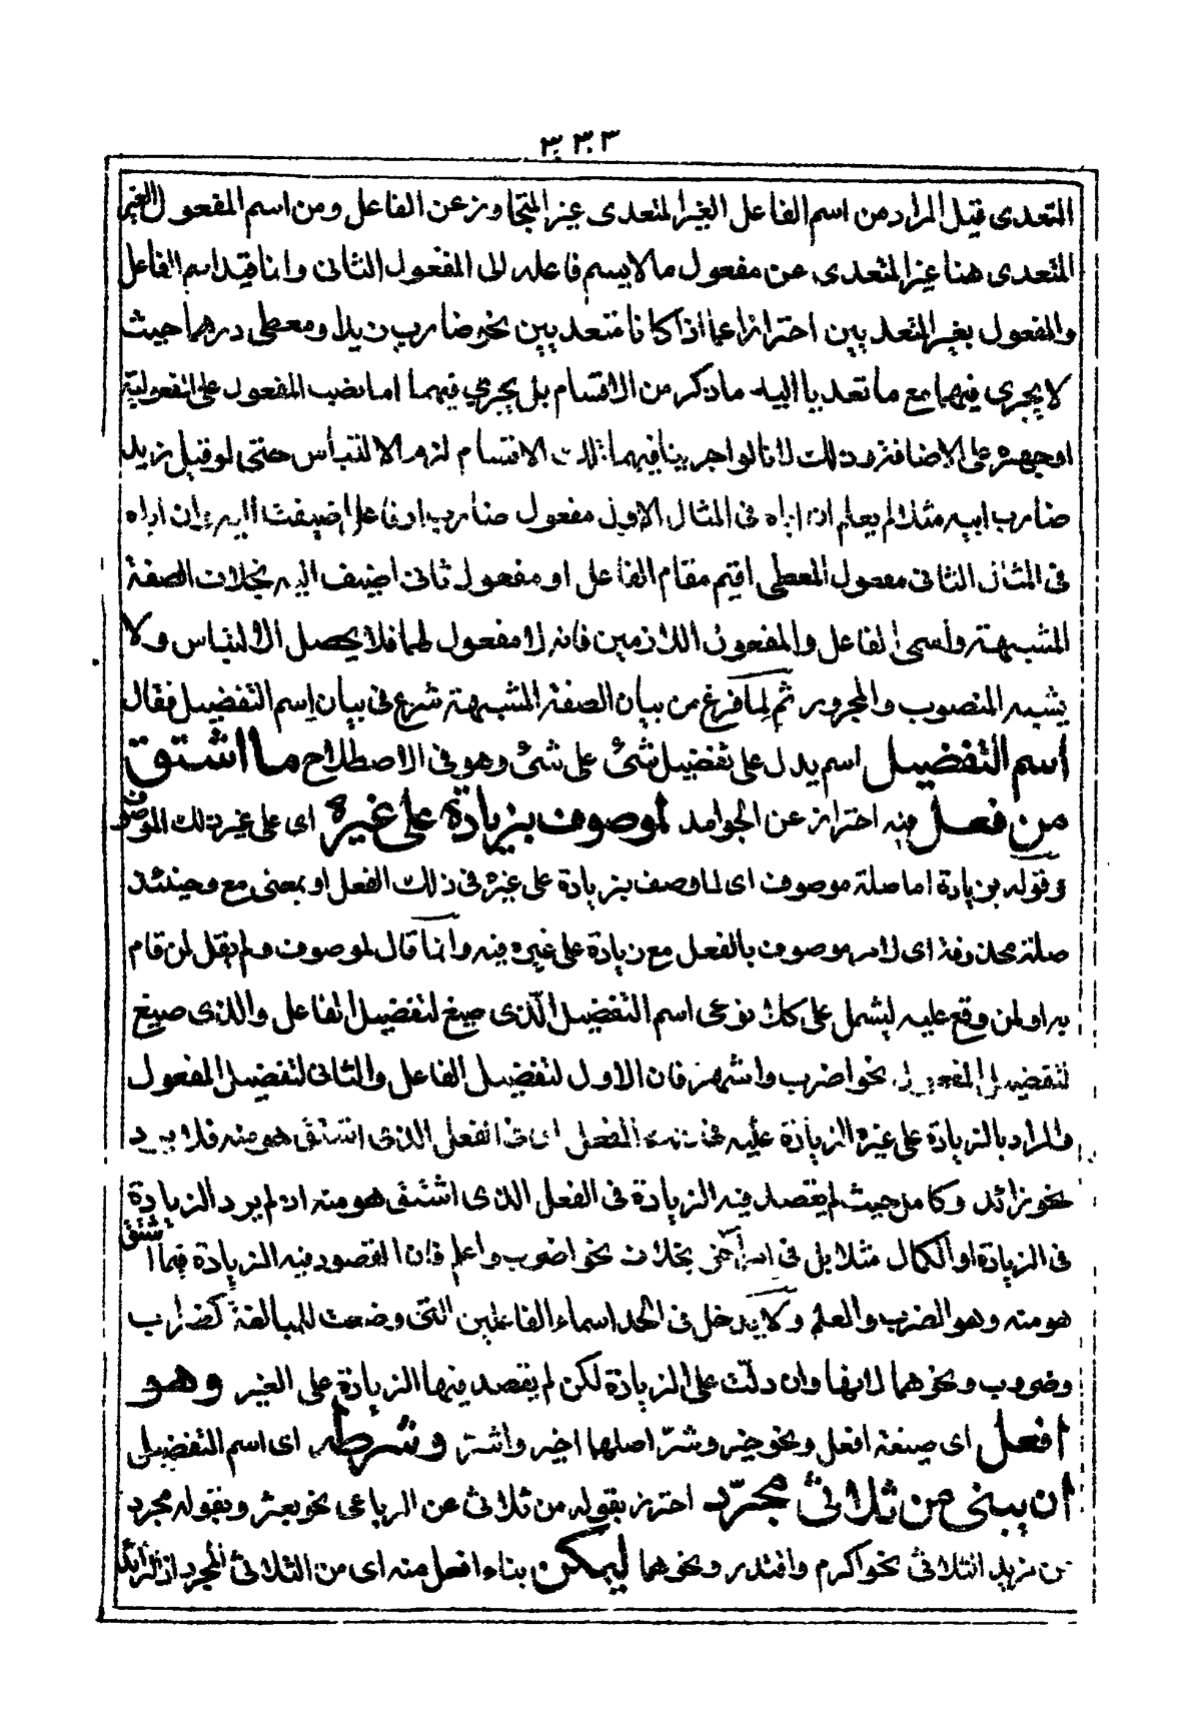 ٣٣٣
المتعدى قيل المراد من اسم الفاعل الغير المتعدى غير المتجاوز عن الفاعل ومن اسم المفعول الغير
المتعدى هنا غير المتعدى عن مفعول ما لا يسم فاعله الى المفعول الثانى وانما قيد اسم الفاعل
والمفعول بغير المتعديين احترازا عما اذا كانا متعديين نحو ضارب زيدا ومعطى درهما حيث
لا يجرى فيهما مع ما تعديا اليه ما ذكر من الاقسام بل يجرى فيهما اما نصب المفعول على المفعولية
او جره على الاضافة وذلك لانا لو اجرينا فيهما تلك الاقسام لزم الالتباس حتى لو قيل زيد
ضارب ابيه مثلا لم يعلم ان اباه فى المثال الاول مفعول ضارب او فاعل اضيفت اليه وان اباه
فى المثال الثانى مفعول المعطى اقيم مقام الفاعل او مفعول ثانى اضيف اليه بخلاف الصفة
المشبهة واسمى الفاعل والمفعول اللازمين فانه لا مفعول لهما فلا يحصل الالتباس ولا
يشبه المنصوب والمجرور ثم لما فرغ من بيان الصفة المشبهة شرع فى بيان اسم التفضيل فقال
اسم التفضيل اسم يدل على تفضيل شئ على شئ وهو فى الاصطلاح ما اشتق
من فعل فيه احتراز عن الجوامد لموصوف بزيادة على غيره اى على غير ذلك الموصوف
وقوله بزيادة اما صلة موصوف اى لما وصف بزيادة على غيره فى ذلك الفعل او بمعنى مع وحينئذ
صلته محذوفة اى لامر موصوف بالفعل مع زيادة على غيره فيه وانما قال لموصوف ولم يقل لمن قام
به او لمن وقع عليه ليشمل على كلا نوعى اسم التفضيل الذى صيغ لتفضيل الفاعل والذى صيغ
لتفضيل المفعول نحو اضرب واشهر فان الاول لتفضيل الفاعل والثانى لتفضيل المفعول
فالمراد بالزيادة على غيره الزيادة عليه فى ذلك الفعل اى فى الفعل الذى اشتق هو منه فلا يرد
نحو زائد وكامل حيث لم يقصد فيه الزيادة فى الفعل الذى اشتق هو منه اذ لم يرد الزيادة
فى الزيادة او الكمال مثلا بل فى امر آخر بخلاف نحو اضرب واعلم فان المقصود فيه الزيادة فيما اشتق
هو منه وهو الضرب والعلم ولا يدخل فى الحد اسماء الفاعلين التى وضعت للمبالغة كضراب
وضروب ونحوهما لانها وان دلت على الزيادة لكن لم يقصد فيها الزيادة على الغير وهو
افعل اى صيغة افعل ونحو خير وشر اصلهما اخير واشر وشرطه اى اسم التفضيل
ان يبنى من ثلاثى مجرد احترز بقوله من ثلاثى عن الرباعى نحو بعثر وبقوله مجرد
عن مزيد الثلاثى نحو اكرم واقتدر ونحوهما ليمكن بناء افعل منه اى من الثلاثى المجرد اذ الزائد